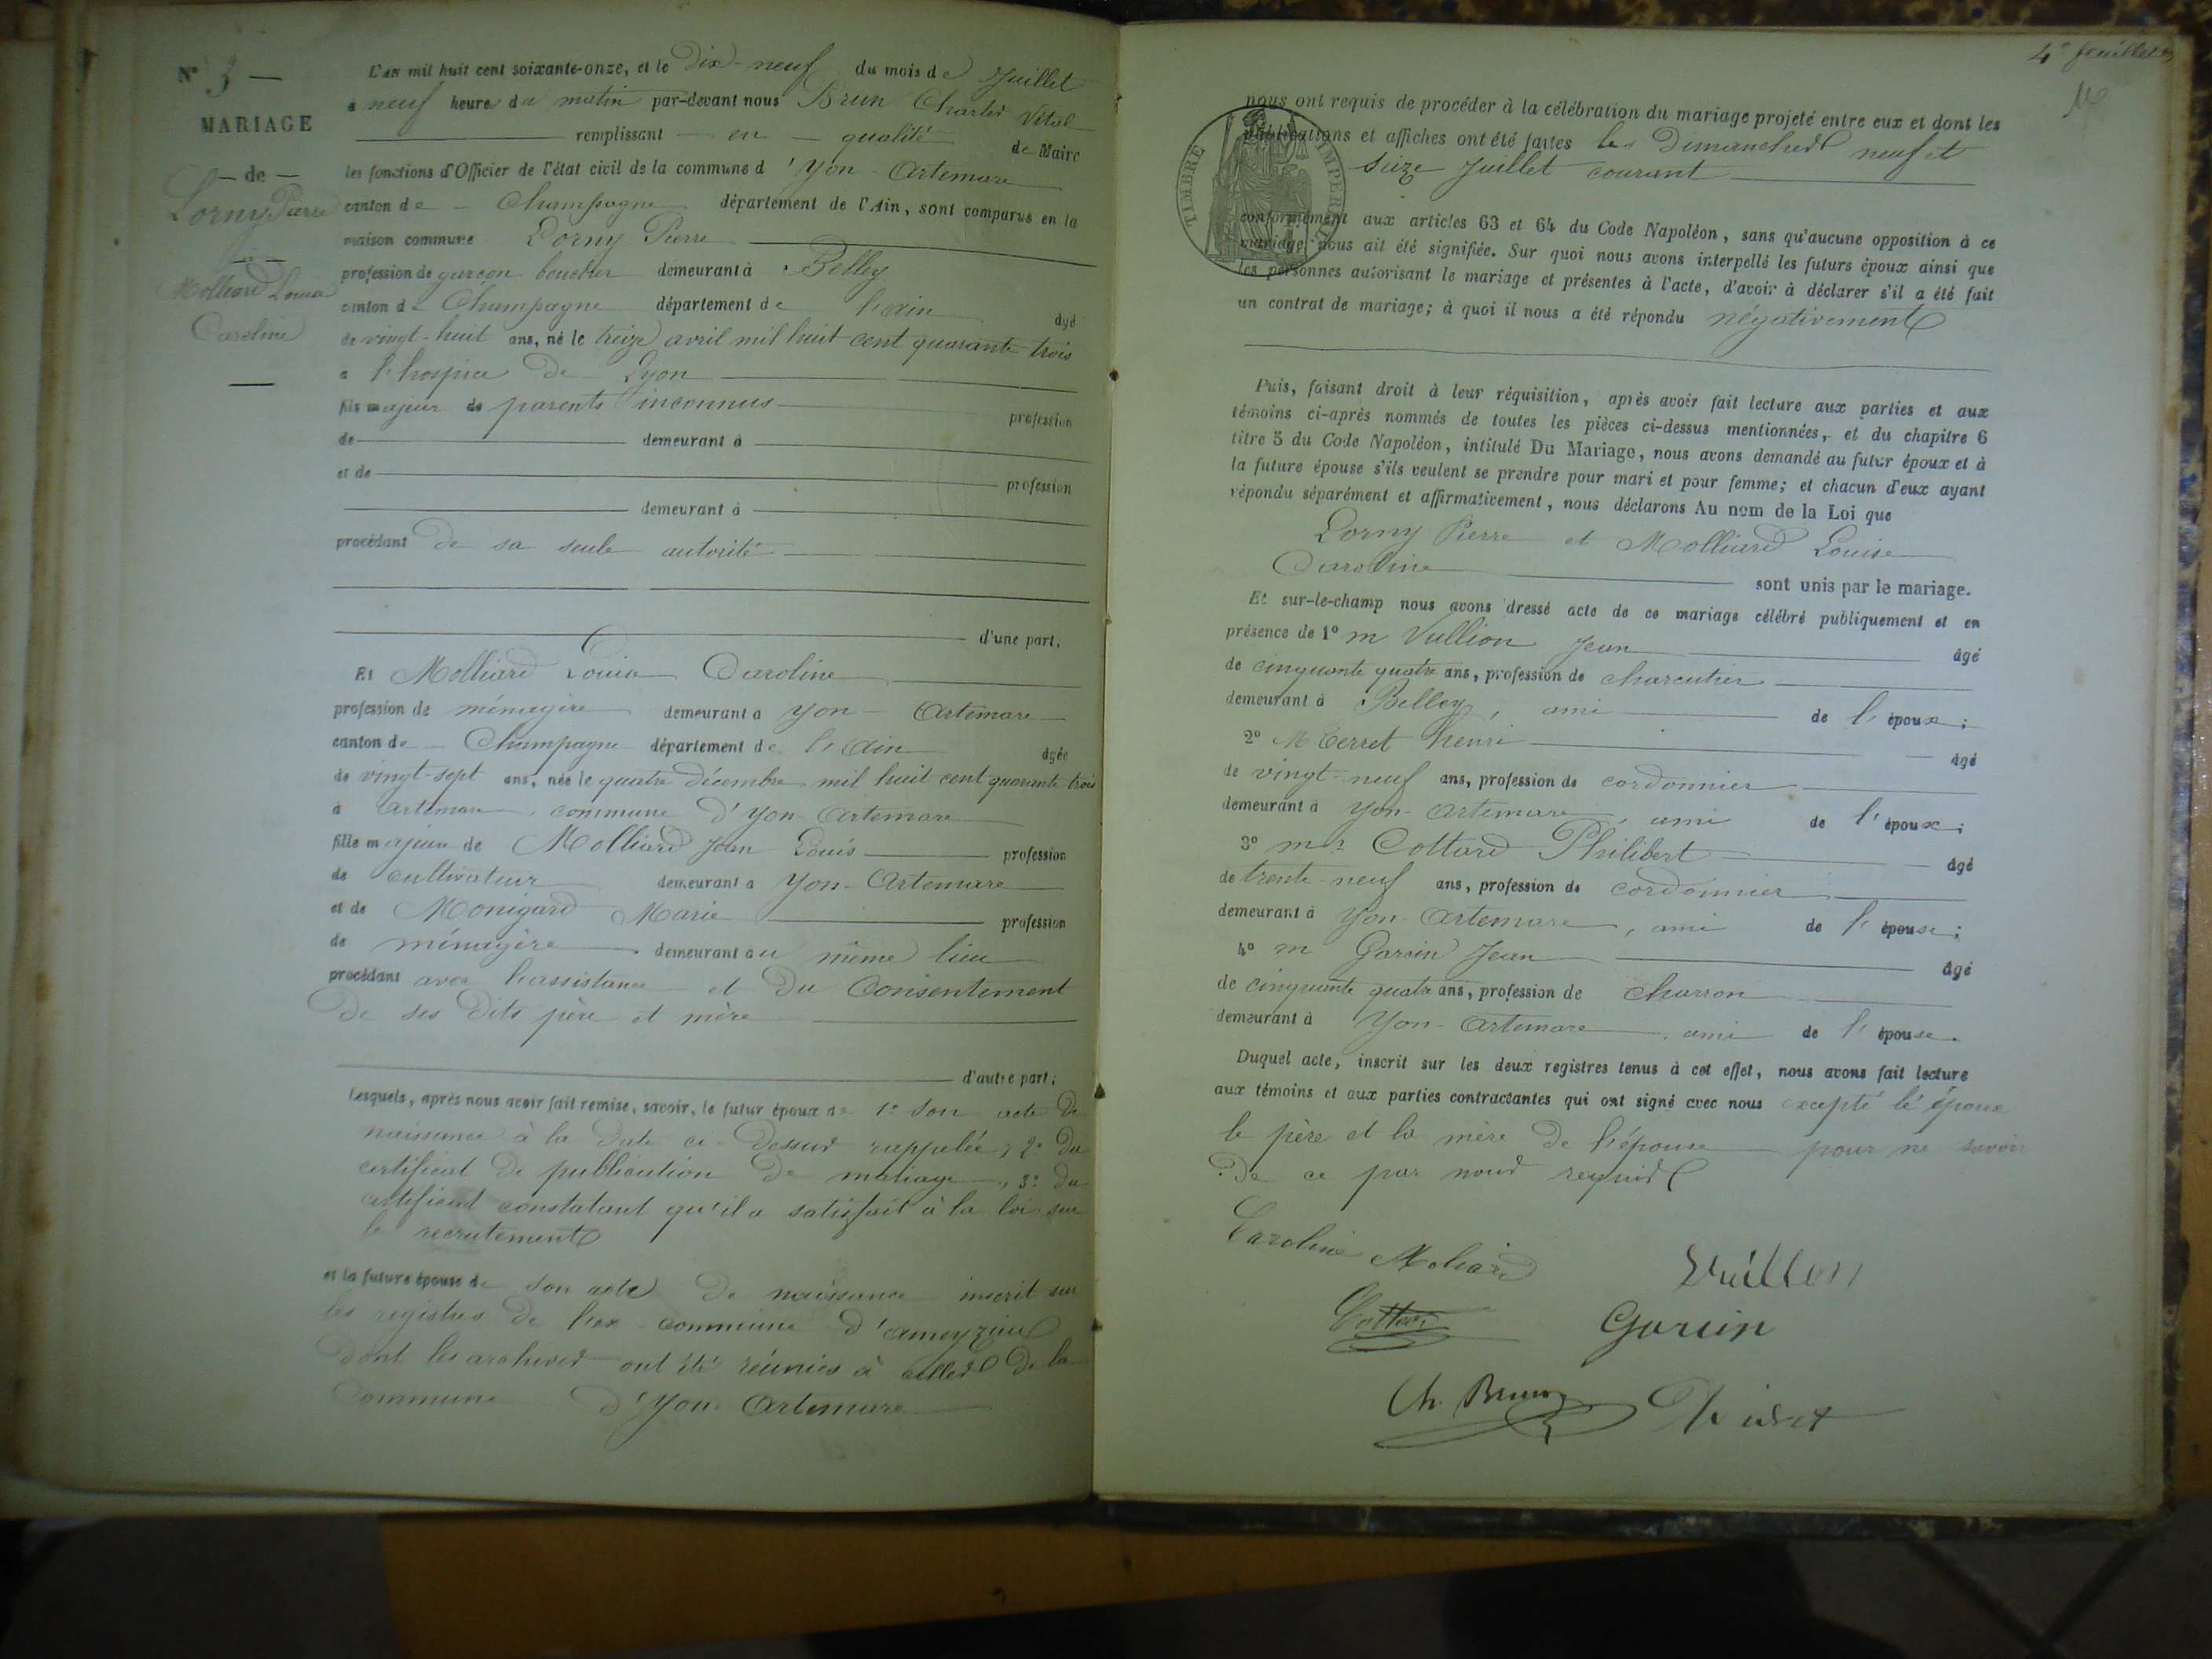 N° 3 —
MARIAGE
— de —
Lorny Pierre
Molliard Louise
Caroline
L'an mil huit cent soixante-onze, et le Dix-neuf du mois de Juillet
à neuf heures du matin par-devant nous Brun Charles Vital
remplissant en qualité de Maire
les fonctions d'Officier de l'état civil de la commune d'Yon-Artemare
canton de Champagne département de l'Ain, sont comparus en la
maison commune Lorny Pierre
profession de garçon boucher demeurant à Belley
canton de Champagne département de l'ain âgé
de vingt-huit ans, né le treize avril mil huit cent quarante trois
à l'hospice de Lyon
fils majeur de parents inconnus profession
de demeurant à
et de profession
demeurant à
procédant de sa seule autorité
d'une part,
Et Molliard Louise Caroline
profession de ménagère demeurant à Yon-Artemare
canton de Champagne département de l'Ain âgée
de vingt-sept ans, née le quatre Décembre mil huit cent quarante trois
à Artemare, commune d'Yon-Artemare
fille majeure de Molliard Jean Louis profession
de cultivateur demeurant à Yon-Artemare
et de Monigard Marie profession
de ménagère demeurant au même lieu
procédant avec l'assistance et du Consentement
De ses Dits père et mère
d'autre part;
Lesquels, après nous avoir fait remise, savoir, le futur époux de 1° son acte de
naissance à la Date ci-Dessus rappelée, 2° du
certificat de publication de mariage, 3° du
certificat constatant qu'il a satisfait à la loi sur
le recrutement
et la future épouse de son acte de naissance inscrit sur
les registres de l'ex-commune d'ameyzieu
Dont les archives ont été réunies à celles De la
Commune d'Yon-Artemare
4e feuillet
nous ont requis de procéder à la célébration du mariage projeté entre eux et dont les
publications et affiches ont été faites les Dimanches neuf et
seize Juillet courant
TIMBRE IMPERIAL
conformément aux articles 63 et 64 du Code Napoléon, sans qu'aucune opposition à ce
mariage nous ait été signifiée. Sur quoi nous avons interpellé les futurs époux ainsi que
les personnes autorisant le mariage et présentes à l'acte, d'avoir à déclarer s'il a été fait
un contrat de mariage; à quoi il nous a été répondu négativement
Puis, faisant droit à leur réquisition, après avoir fait lecture aux parties et aux
témoins ci-après nommés de toutes les pièces ci-dessus mentionnées, et du chapitre 6
titre 5 du Code Napoléon, intitulé Du Mariage, nous avons demandé au futur époux et à
la future épouse s'ils veulent se prendre pour mari et pour femme; et chacun d'eux ayant
répondu séparément et affirmativement, nous déclarons Au nom de la Loi que
Lorny Pierre et Molliard Louise
Caroline sont unis par le mariage.
Et sur-le-champ nous avons dressé acte de ce mariage célébré publiquement et en
présence de 1° m Vullion Jean âgé
de cinquante quatre ans, profession de charcutier
demeurant à Belley, ami de l'époux;
2° M Terret henri âgé
de vingt-neuf ans, profession de cordonnier
demeurant à Yon-Artemare, ami de l'époux;
3° mr Cottard Philibert âgé
de trente-neuf ans, profession de cordonnier
demeurant à Yon-Artemare, ami de l'épouse;
4° m Garin Jean âgé
de cinquante quatre ans, profession de Charron
demeurant à Yon-Artemare, ami de l'épouse.
Duquel acte, inscrit sur les deux registres tenus à cet effet, nous avons fait lecture
aux témoins et aux parties contractantes qui ont signé avec nous excepté l'époux
le père et la mère de l'épouse pour ne savoir
De ce par nous requis
Caroline Moliard Vuillon
Cottard Garin
Ch. Brun